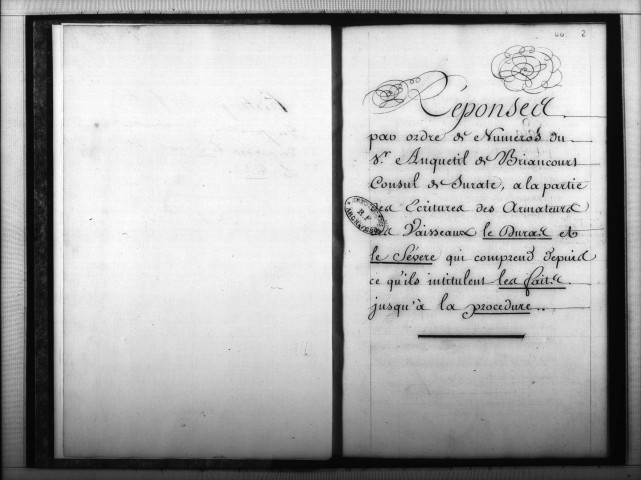 60. 2
Réponses
par ordre de Numéros du
S.r Anquetil de Briancourt
Consul de Surate, a la partie
des Ecritures des Armateurs
des Vaisseaux le Duras et
le Sévère qui comprend depuis
ce qu'ils intitulent les faits
jusqu'à la procedure..